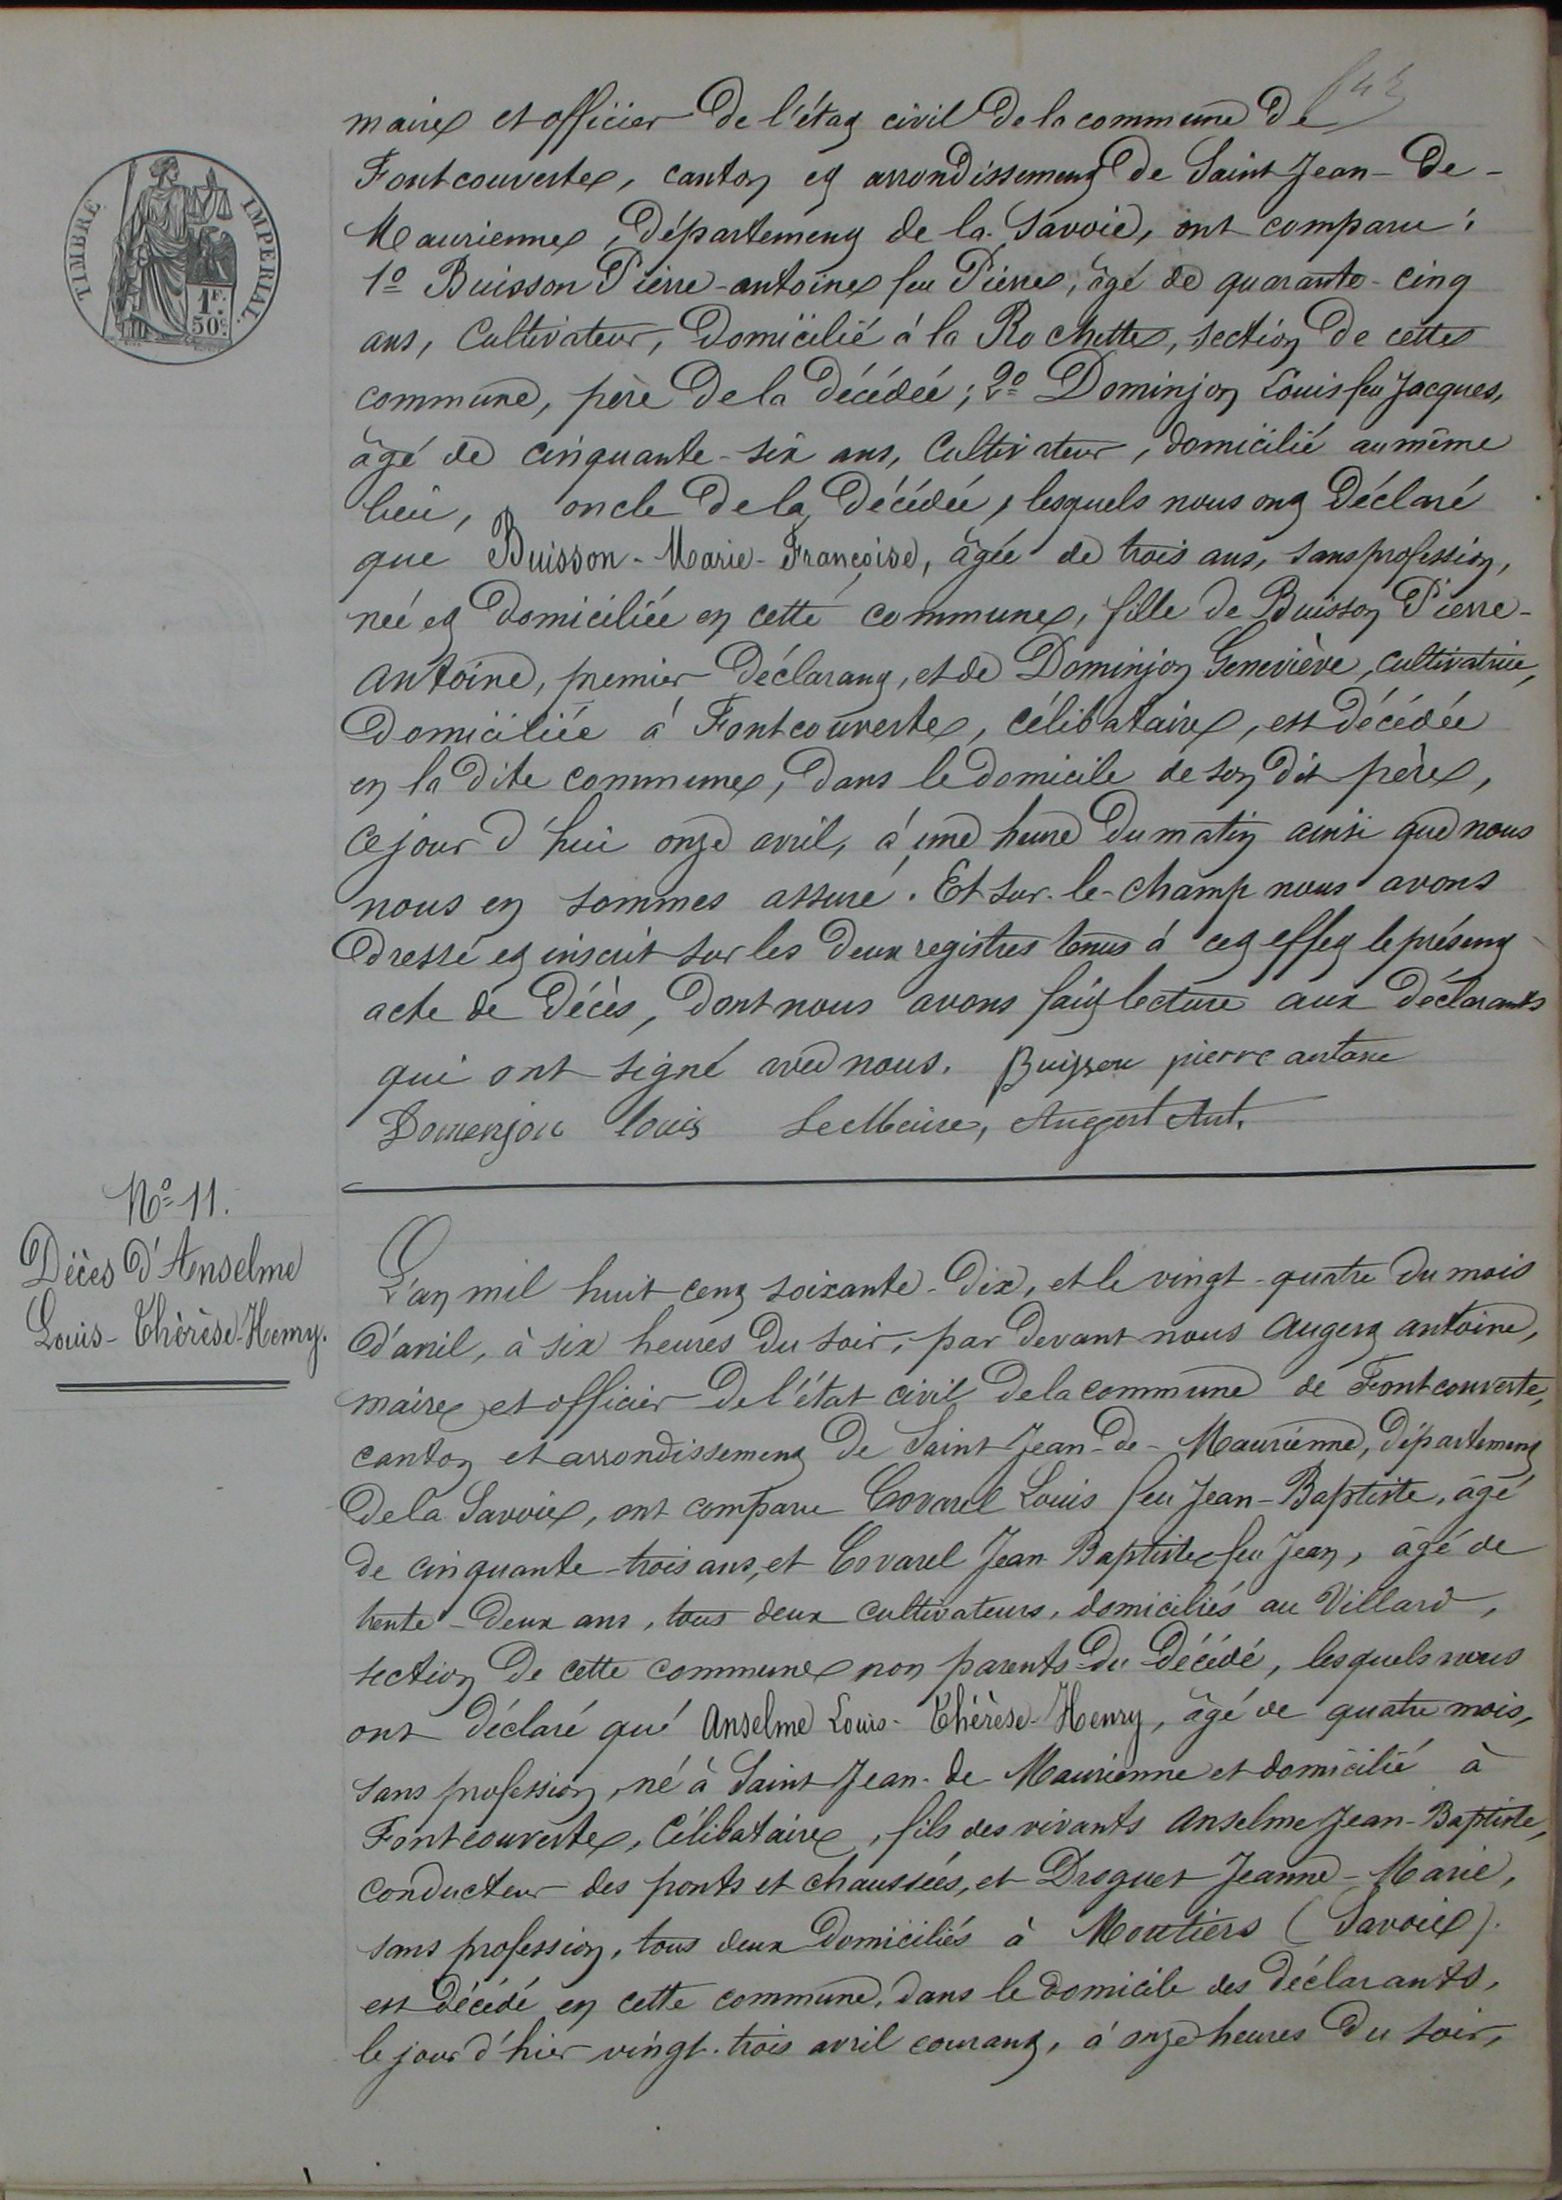 maire et officier de l'état civil de la commune de
Fontcouverte, canton et arrondissement de Saint Jean-de-
Maurienne, département de la Savoie, ont comparu:
TIMBRE IMPERIAL.
1F. 50C.
1º Buisson Pierre-antoine feu Pierre, âgé de quarante-cinq
ans, Cultivateur, Domicilié à la Rochette, section de cette
commune, père de la décédée; 2º Dominjon Louis feu Jacques,
âgé de cinquante-six ans, Cultivateur, domicilié au même
lieu, oncle de la décédée, lesquels nous ont déclaré
que Buisson-Marie-Françoise, âgée de trois ans, sans profession,
née et domiciliée en cette commune, fille de Buisson Pierre-
antoine, premier déclarant, et de Dominjon Geneviève, cultivatrice,
domiciliée à Fontcouverte, célibataire, est décédée
en la dite commune, dans le domicile de son dit père,
ce jour d'hui onze avril, à une heure du matin ainsi que nous
nous en sommes assuré. Et sur-le-champ nous avons
dressé et inscrit sur les deux registres tenus à cet effet le présent
acte de décès, dont nous avons fait lecture aux déclarants
qui ont signé avec nous. Buisson pierre antone
Domenjon louis Le Maire, Augert Ant.
Nº 11.
Décès d'Anselme
Louis-Thérèse-Henry.
L'an mil huit cent soixante-dix, et le vingt-quatre du mois
d'avril, à six heures du soir, par devant nous Augert antoine,
maire et officier de l'état civil de la commune de Fontcouverte,
canton et arrondissement de Saint Jean-de-Maurienne, département
de la Savoie, ont comparu Covarel Louis feu Jean-Baptiste, âgé
de cinquante-trois ans, et Covarel Jean-Baptiste feu Jean, âgé de
trente-deux ans, tous deux cultivateurs, domiciliés au Villard,
section de cette commune non parents du décédé, lesquels nous
ont déclaré que Anselme Louis-Thérèse-Henry, âgé de quatre mois,
sans profession, né à Saint Jean-de-Maurienne et domicilié à
Fontcouverte, Célibataire, fils des vivants Anselme Jean-Baptiste,
conducteur des ponts et chaussées, et Droguet Jeanne-Marie,
sans profession, tous deux domiciliés à Moutiers (Savoie).
est décédé en cette commune, dans le domicile des déclarants,
le jour d'hier vingt-trois avril courant, à onze heures du soir,